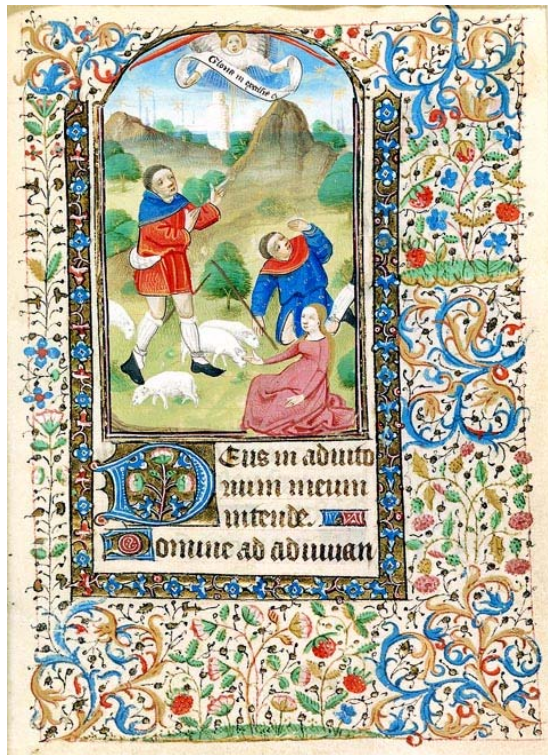 Gloria in excelsis d
Deus in adiuto
rium meum
intende.
Domine ad adiuuan